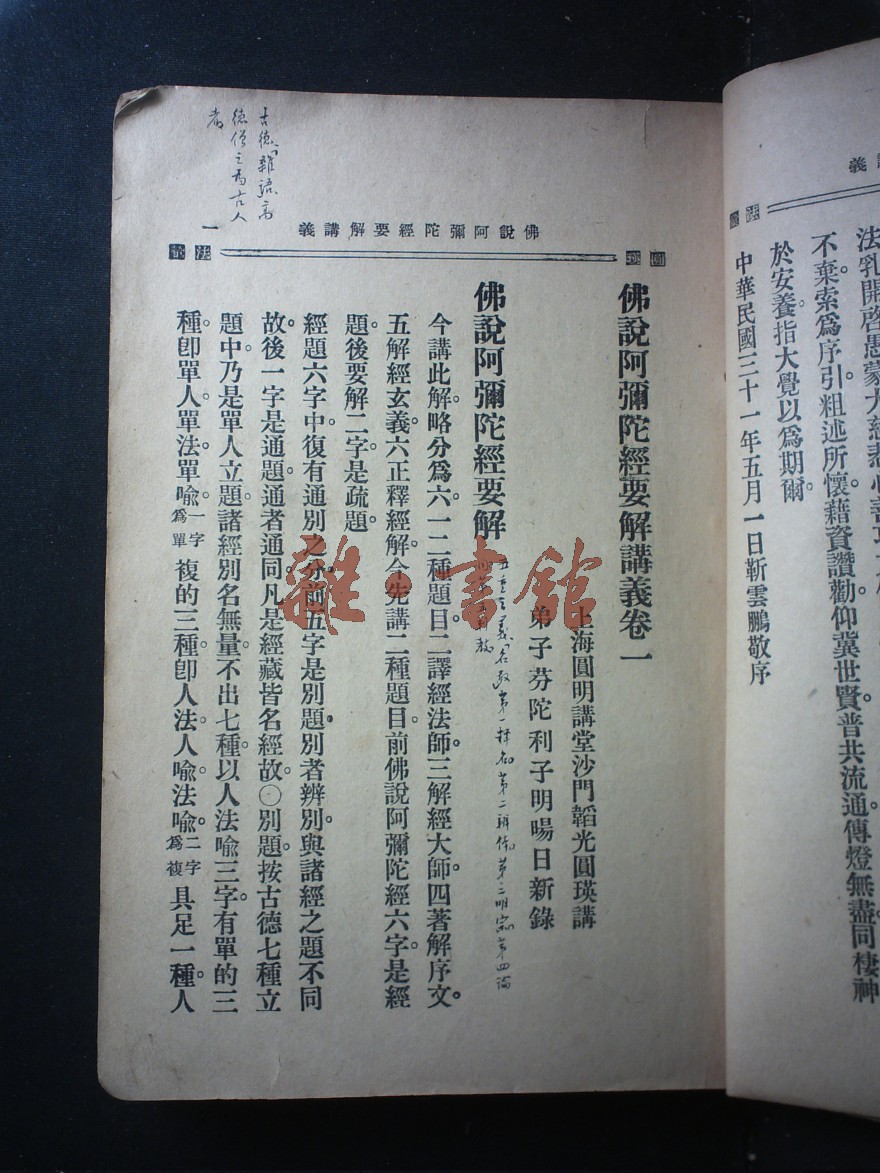 義
法乳開啓愚蒙大慈悲心善
不棄索爲序引粗述所懷藉資讚勸仰冀世賢普共流通傳燈無盡同棲神
於安養指大覺以爲期爾
中華民國三十一年五月一日靳雲鵬敬序
佛說阿彌陀經要解講義
一
圓
法
佛說阿彌陀經要解講義卷一
上海圓明講堂沙門韜光圓瑛講
弟子芬陀利子明暘日新錄
佛說阿彌陀經要解
五重玄義名敎第一釋名第二辨体第三明宗第四論
今講此解。略分爲六。一二種題目。二譯經法師。三解經大師。四著解序文。
五解經玄義。六正釋經解。今先講二種題目。前佛說阿彌陀經六字。是經
題。後要解二字。是疏題。
經題六字中。復有通別之分。前五字是別題。別者辨別。與諸經之題不同
故。後一字是通題。通者通同。凡是經藏。皆名經故。〇別題。按古德七種立
題中。乃是單人立題。諸經別名無量。不出七種。以人法喻三字。有單的三
種。卽單人。單法。單喻。一字爲單複的三種。卽人法。人喻。法喻。二字爲複具足一種。人
古德「雜語」高
德僧之爲古人
者
雜·書館